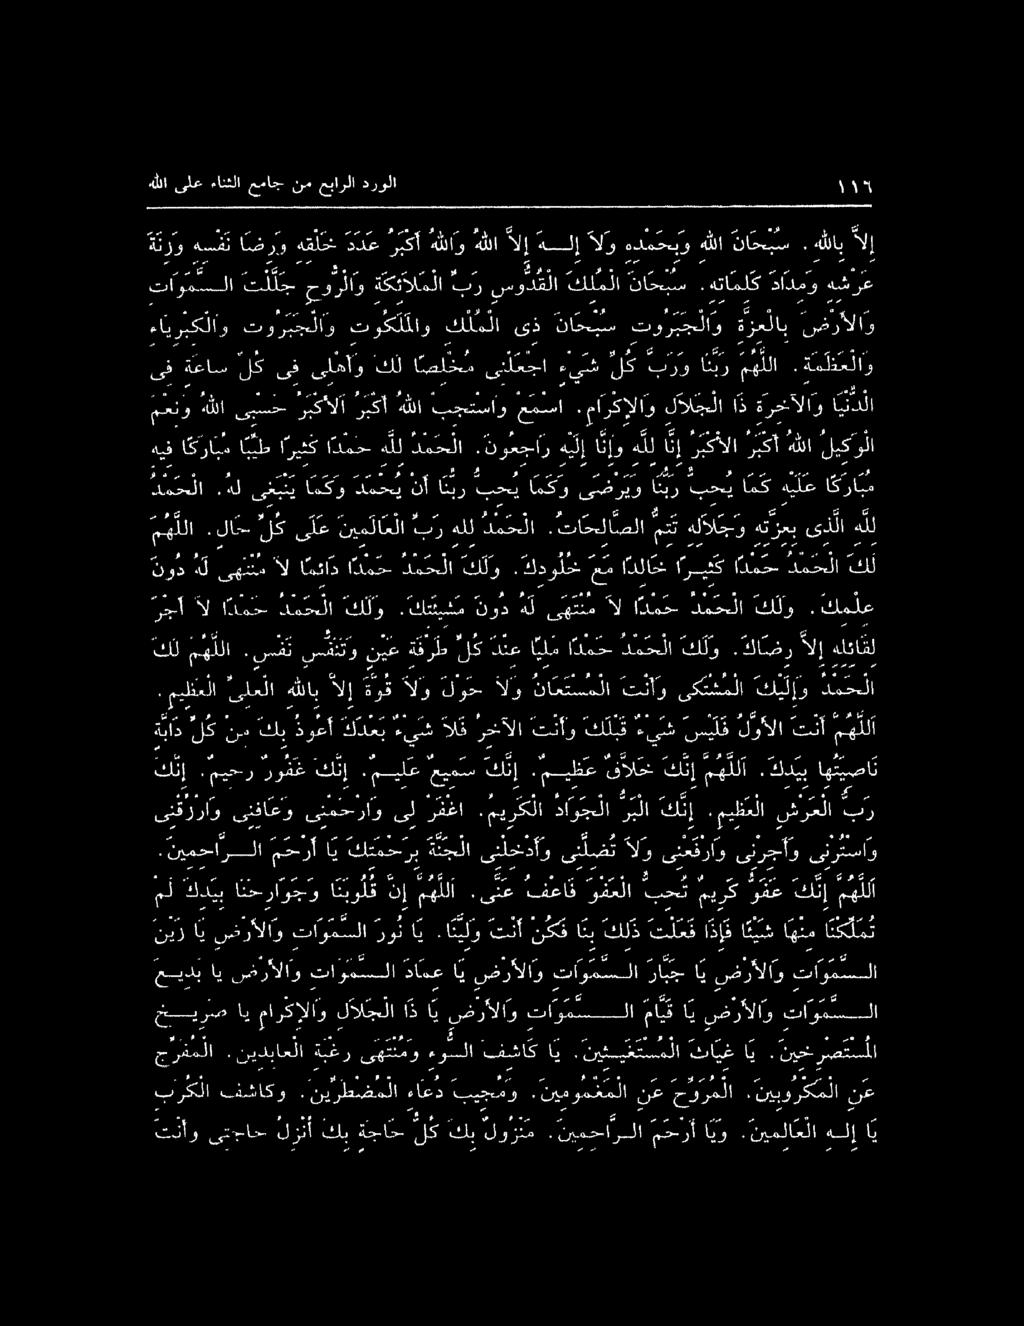 ١١٦ الورد الرابع من جامع الثناء على الله
إِلاَّ بِاللهِ. سُبْحَانَ اللهِ وَبِحَمْدِهِ وَلاَ إِلَـهَ إِلاَّ اللهُ وَاللهُ أَكْبَرُ عَدَدَ خَلْقِهِ وَرِضَا نَفْسِهِ وَزِنَةَ
عَرْشِهِ وَمِدَادَ كَلِمَاتِهِ. سُبْحَانَ الْمَلِكِ الْقُدُّوسِ رَبِّ الْمَلاَئِكَةِ وَالرُّوحِ جَلَّلْتَ السَّمَوَاتِ
وَالأَرْضَ بِالْعِزَّةِ وَالْجَبَرُوتِ سُبْحَانَ ذِى الْمُلْكِ وَالْمَلَكُوتِ وَالْجَبَرُوتِ وَالْكِبْرِيَاءِ
وَالْعَظَمَةِ. اللَّهُمَّ رَبَّنَا وَرَبَّ كُلِّ شَيْءٍ اجْعَلْنِى مُخْلِصًا لَكَ وَأَهْلِى فِى كُلِّ سَاعَةٍ فِى
الدُّنْيَا وَالآخِرَةِ ذَا الْجَلاَلِ وَالإِكْرَامِ. اسْمَعْ وَاسْتَجِبْ اللهُ أَكْبَرُ الأَكْبَرُ حَسْبِىَ اللهُ وَنِعْمَ
الْوَكِيلُ اللهُ أَكْبَرُ الأَكْبَرُ إِنَّا لِلَّهِ وَإِنَّا إِلَيْهِ رَاجِعُونَ. الْحَمْدُ لِلَّهِ حَمْدًا كَثِيرًا طَيِّبًا مُبَارَكًا فِيهِ
مُبَارَكًا عَلَيْهِ كَمَا يُحِبُّ رَبُّنَا وَيَرْضَى وَكَمَا يُحِبُّ رَبُّنَا أَنْ يُحْمَدَ وَكَمَا يَنْبَغِى لَهُ. الْحَمْدُ
لِلَّهِ الَّذِى بِعِزَّتِهِ وَجَلاَلِهِ تَتِمُّ الصَّالِحَاتُ. الْحَمْدُ لِلهِ رَبِّ الْعَالَمِينَ عَلَى كُلِّ حَالٍ. اللَّهُمَّ
لَكَ الْحَمْدُ حَمْدًا كَثِيرًا خَالِدًا مَعَ خُلُودِكَ. وَلَكَ الْحَمْدُ حَمْدًا دَائِمًا لاَ مُنْتَهِى لَهُ دُونَ
عِلْمِكَ. وَلَكَ الْحَمْدُ حَمْدًا لاَ مُنْتَهَى لَهُ دُونَ مَشِيئَتِكَ. وَلَكَ الْحَمْدُ حَمْدًا لاَ أَجْرَ
لِقَائِلِهِ إِلاَّ رِضَاكَ. وَلَكَ الْحَمْدُ حَمْدًا مَلِيًّا عِنْدَ كُلِّ طَرْفَةِ عَيْنٍ وَتَنَفُّسِ نَفَسٍ. اللَّهُمَّ لَكَ
الْحَمْدُ وَإِلَيْكَ الْمُشْتَكَى وَأَنْتَ الْمُسْتَعَانُ وَلاَ حَوْلَ وَلاَ قُوَّةَ إِلاَّ بِاللهِ الْعَلِىِّ الْعَظِيمِ.
اَللَّهُمَّ أَنْتَ الأَوَّلُ فَلَيْسَ شَيْءٌ قَبْلَكَ وَأَنْتَ الآخِرُ فَلاَ شَيْءٌ بَعْدَكَ أَعُوذُ بِكَ مِنْ كُلِّ دَابَّةٍ
نَاصِيَتُهَا بِيَدِكَ. اَللَّهُمَّ إِنَّكَ خَلاَّقٌ عَظِيـمٌ. إِنَّكَ سَمِيعٌ عَلِيـمٌ. إِنَّكَ غَفُورٌ رَحِيمٌ. إِنَّكَ
رَبُّ الْعَرْشِ الْعَظِيمِ. إِنَّكَ الْبَرُّ الْجَوَادُ الْكَرِيمُ. اغْفِرْ لِى وَارْحَمْنِى وَعَافِنِى وَارْزُقْنِى
وَاسْتُرْنِى وَأَجِرْنِى وَارْفَعْنِى وَلاَ تُضِلَّنِى وَأَدْخِلْنِى الْجَنَّةَ بِرَحْمَتِكَ يَا أَرْحَمَ الـرَّاحِمِينَ.
اَللَّهُمَّ إِنَّكَ عَفُوٌّ كَرِيمٌ تُحِبُّ الْعَفْوَ فَاعْفُ عَنِّى. اَللَّهُمَّ إِنَّ قُلُوبَنَا وَجَوَارِحَنَا بِيَدِكَ لَمْ
تُمَلِّكْنَا مِنْهَا شَيْئًا فَإِذَا فَعَلْتَ ذَلِكَ بِنَا فَكُنْ أَنْتَ وَلِيَّنَا. يَا نُورَ السَّمَوَاتِ وَالأَرْضِ يَا زَيْنَ
الـسَّمَوَاتِ وَالأَرْضِ يَا جَبَّارَ الـسَّمَوَاتِ وَالأَرْضِ يَا عِمَادَ الـسَّمَوَاتِ وَالأَرْضِ يَا بَدِيـعَ
الـسَّمَوَاتِ وَالأَرْضِ يَا قَيَّامَ الـسَّمَوَاتِ وَالأَرْضِ يَا ذَا الْجَلاَلِ وَالإِكْرَامِ يَا صَرِيـخَ
الْمُسْتَصْرِخِينَ. يَا غِيَاثَ الْمُسْتَغِيـثِينَ. يَا كَاشِفَ السُّوءِ وَمُنْتَهَى رَغْبَةِ الْعَابِدِينَ. الْمُفَرِّجَ
عَنِ الْمَكْرُوبِينَ. الْمُرَوِّحَ عَنِ الْمَغْمُومِينَ. وَمُجِيبَ دُعَاءِ الْمُضْطَرِّينَ. وَكَاشِفَ الْكَرْبِ
يَا إِلَـهَ الْعَالَمِينَ. وَيَا أَرْحَمَ الـرَّاحِمِينَ. مَنْزُولٌ بِكَ كُلُّ حَاجَةٍ بِكَ أُنْزِلُ حَاجَتِى وَأَنْتَ